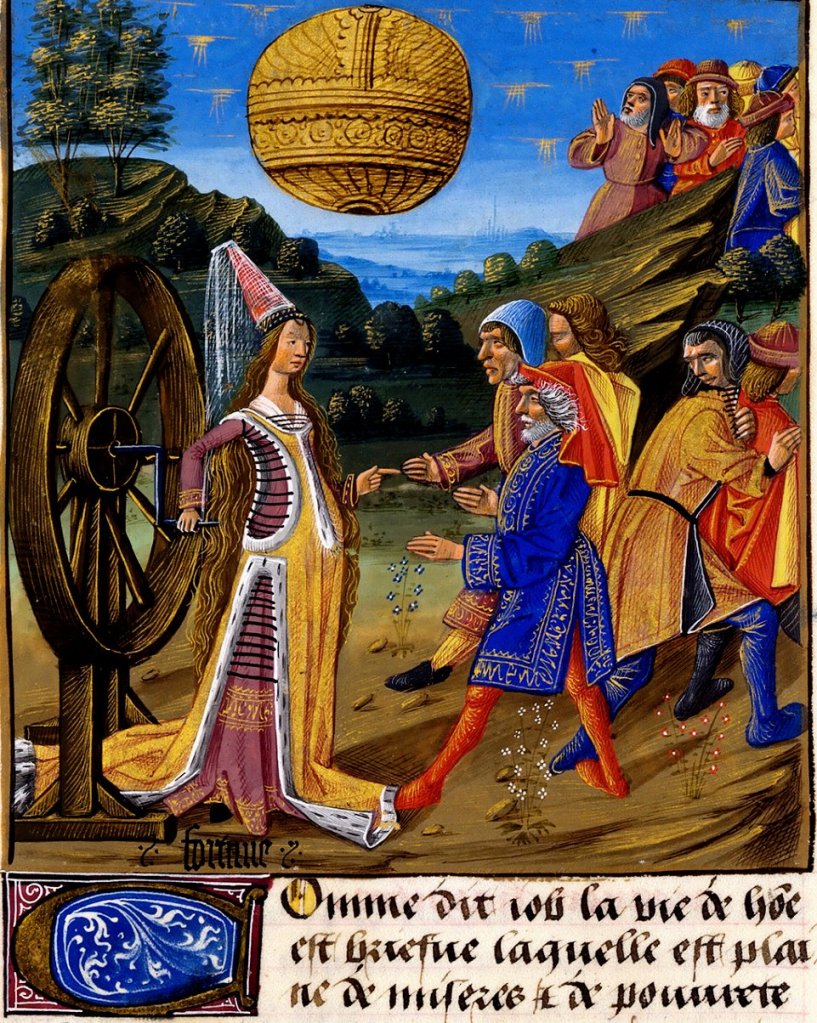 fortune
COmme dit iob la vie de hõe
est briefue laquelle est plai
ne de miseres & de pouurete